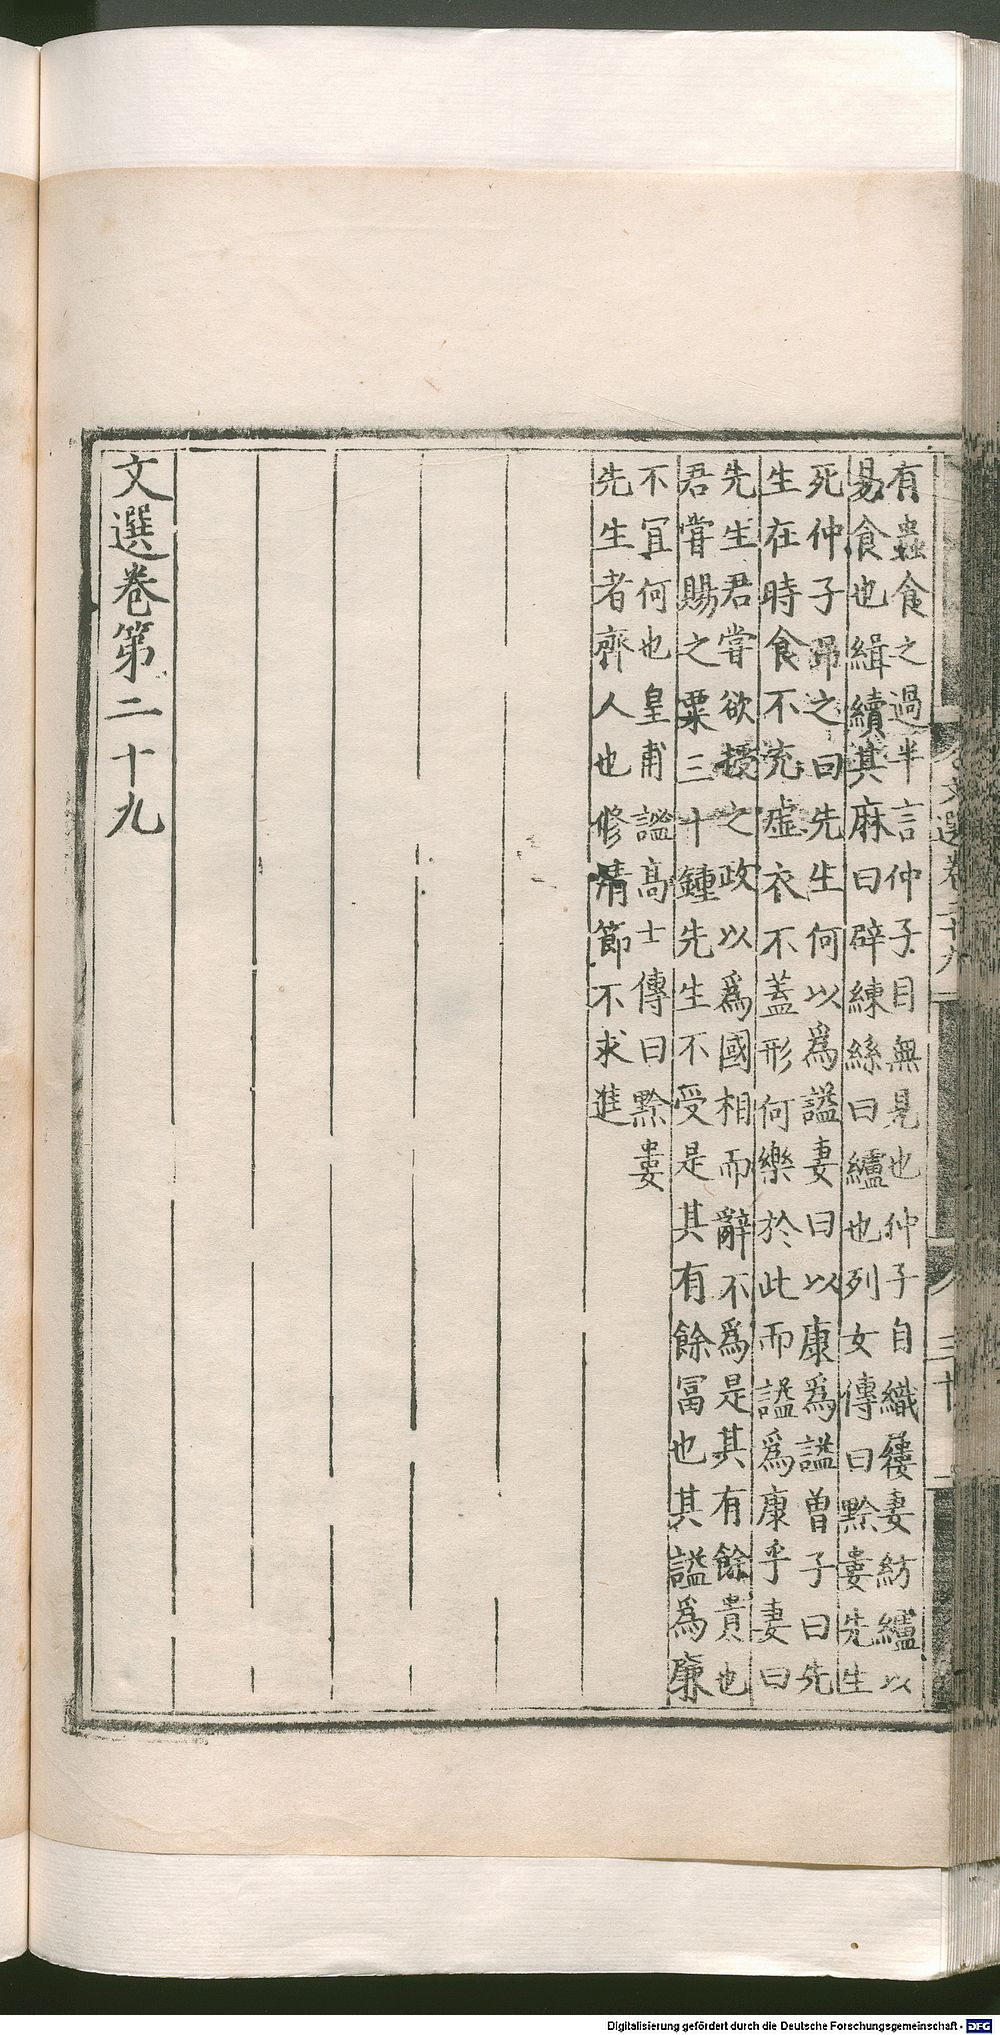 文選卷二十九
三十
有蟲食之過半言仲子目無見也仲子自織屨妻紡纑以
易食也緝續其麻曰辟練絲曰纑也列女傳曰黔婁先生
死仲子弔之曰先生何以爲謚妻曰以康爲謚曾子曰先
生在時食不充虛衣不蓋形何樂於此而謚爲康乎妻曰
先生君嘗欲授之政以爲國相而辭不爲是其有餘貴也
君嘗賜之粟三十鍾先生不受是其有餘冨也其謚爲康
不冝何也皇甫謐高士傳曰黔婁
先生者齊人也修清節不求進
文選卷第二十九
Digitalisierung gefördert durch die Deutsche Forschungsgemeinschaft - DFG